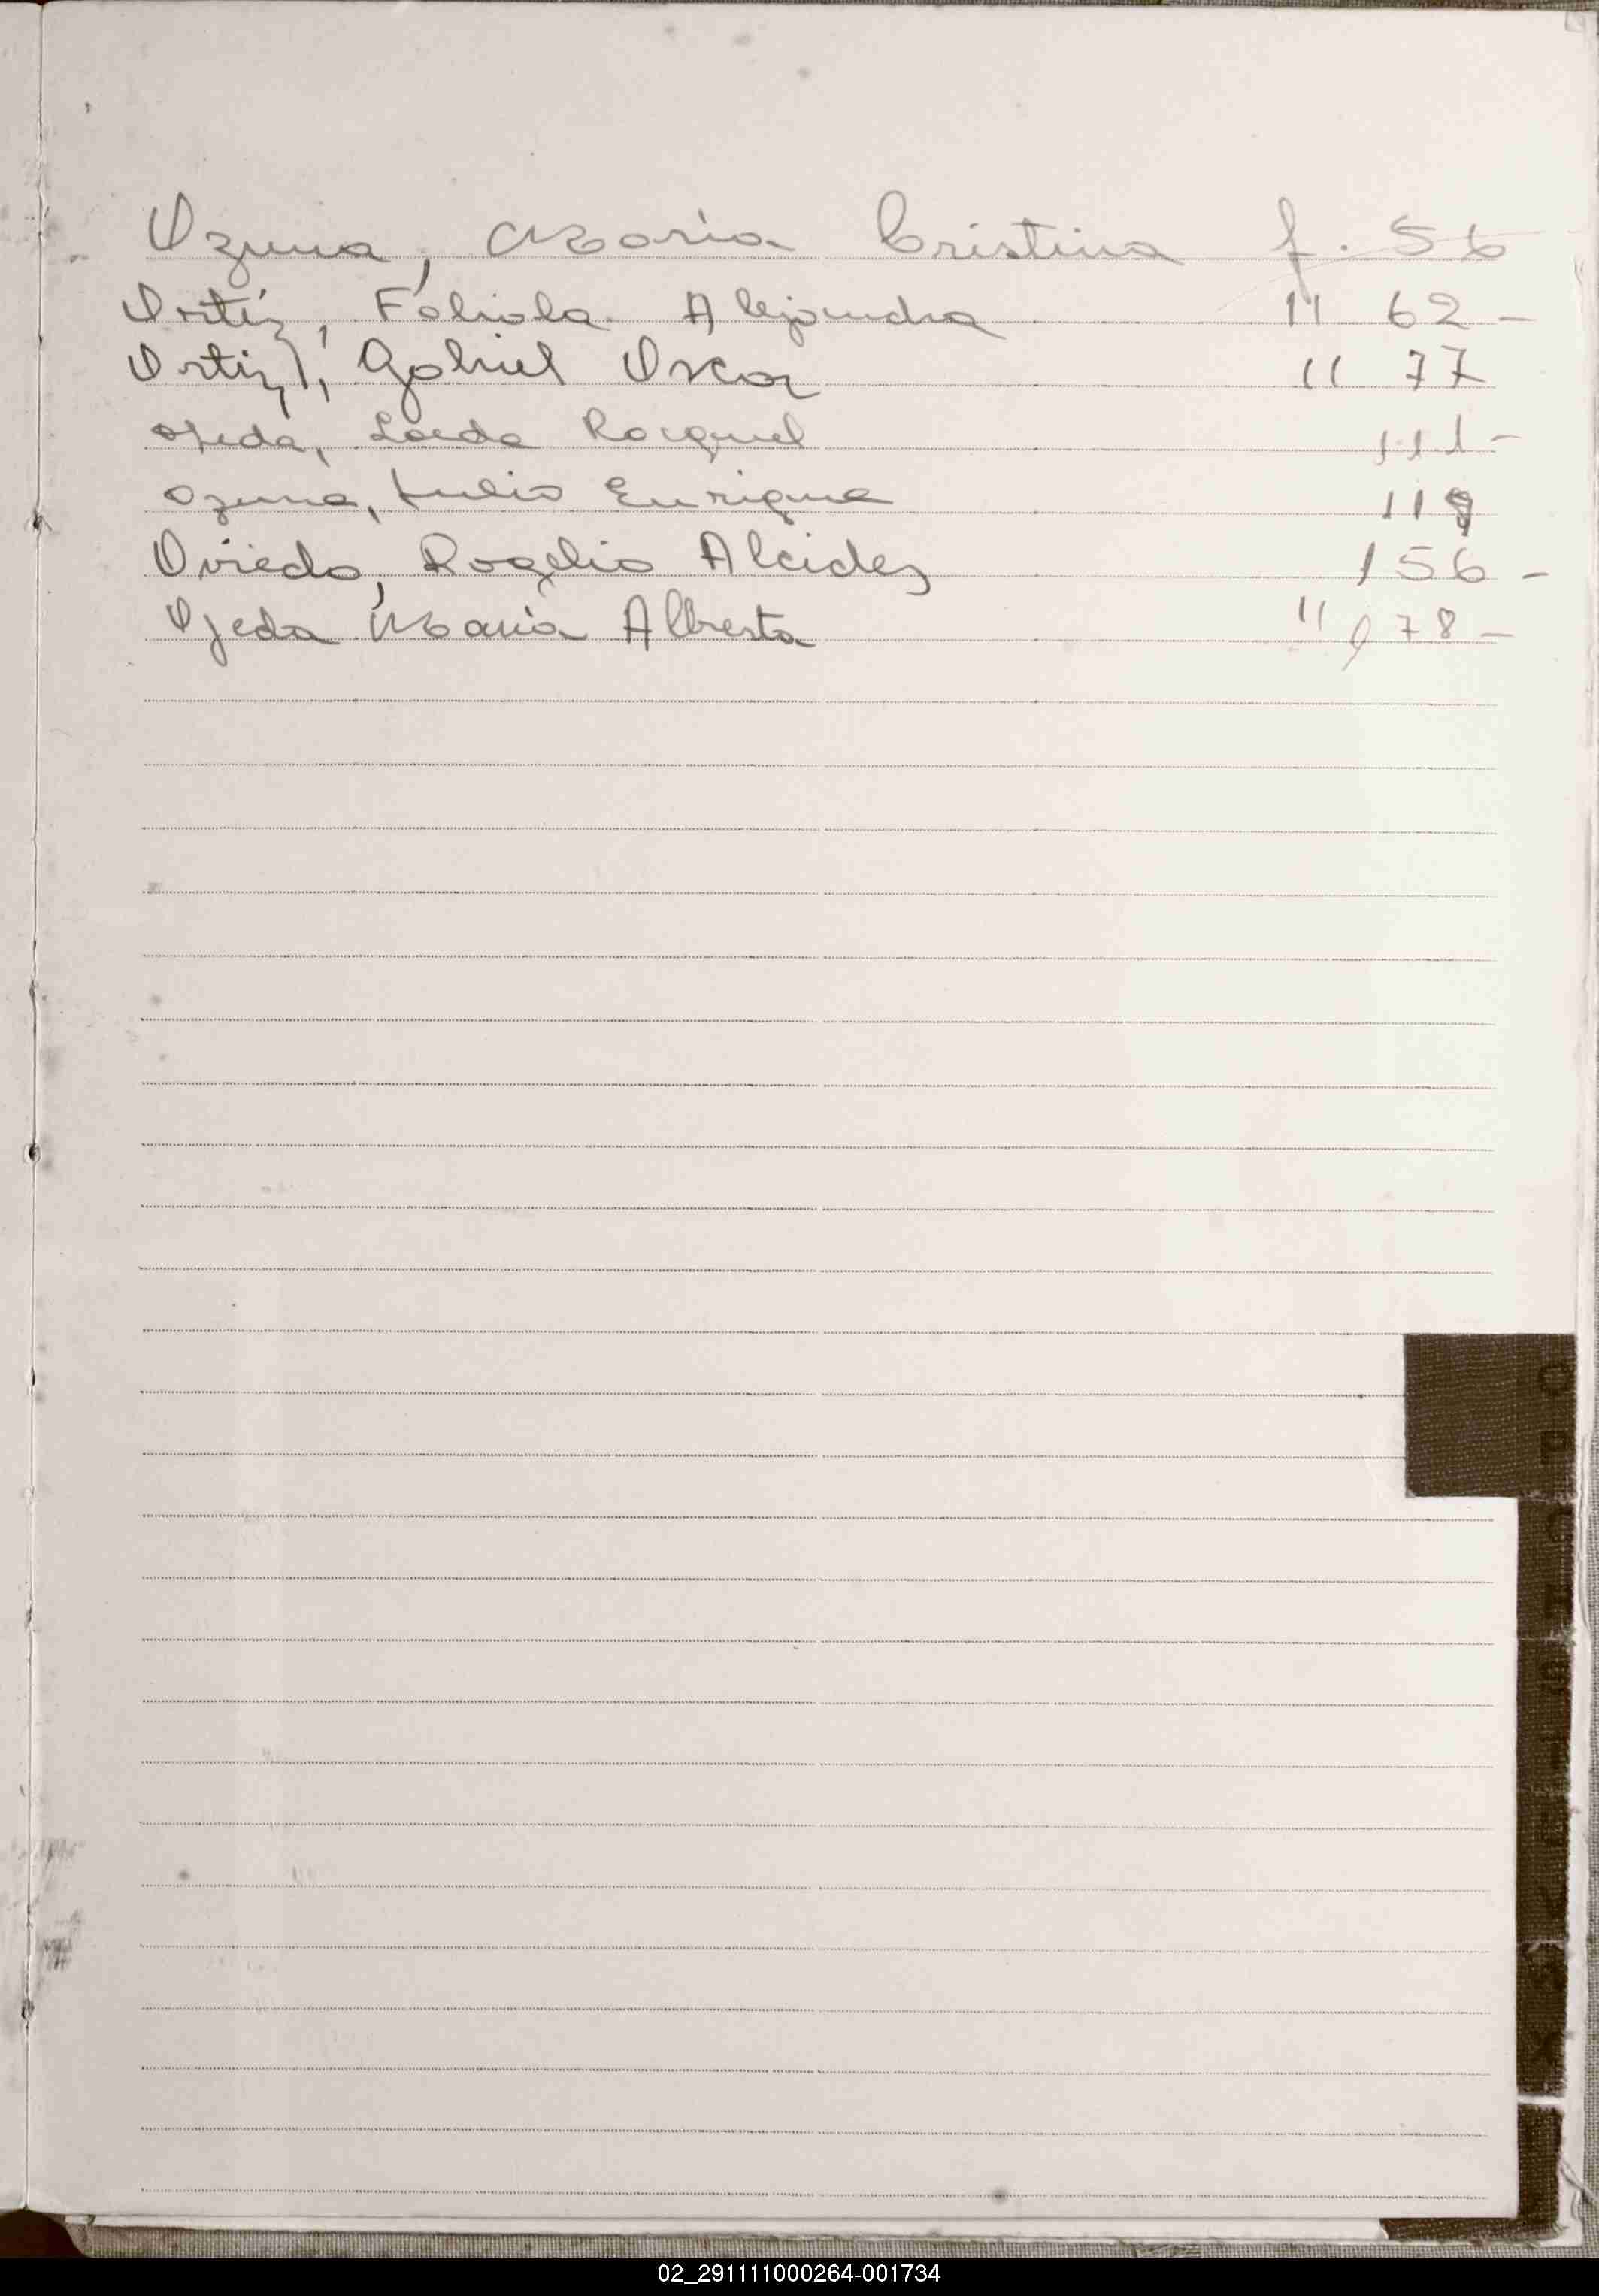 Ozuna, María Cristina f. 56
Ortíz, Fabiola Alejandra 11 62 -
Ortiz, Gabriel Oscar 11 77
Ojeda, Raquel 111 -
Ozuna, Julio Enrique 119
Oviedo, Rogelio Alcides 156 -
Ojeda María Alberta 11 178 -
O
02_291111000264-001734